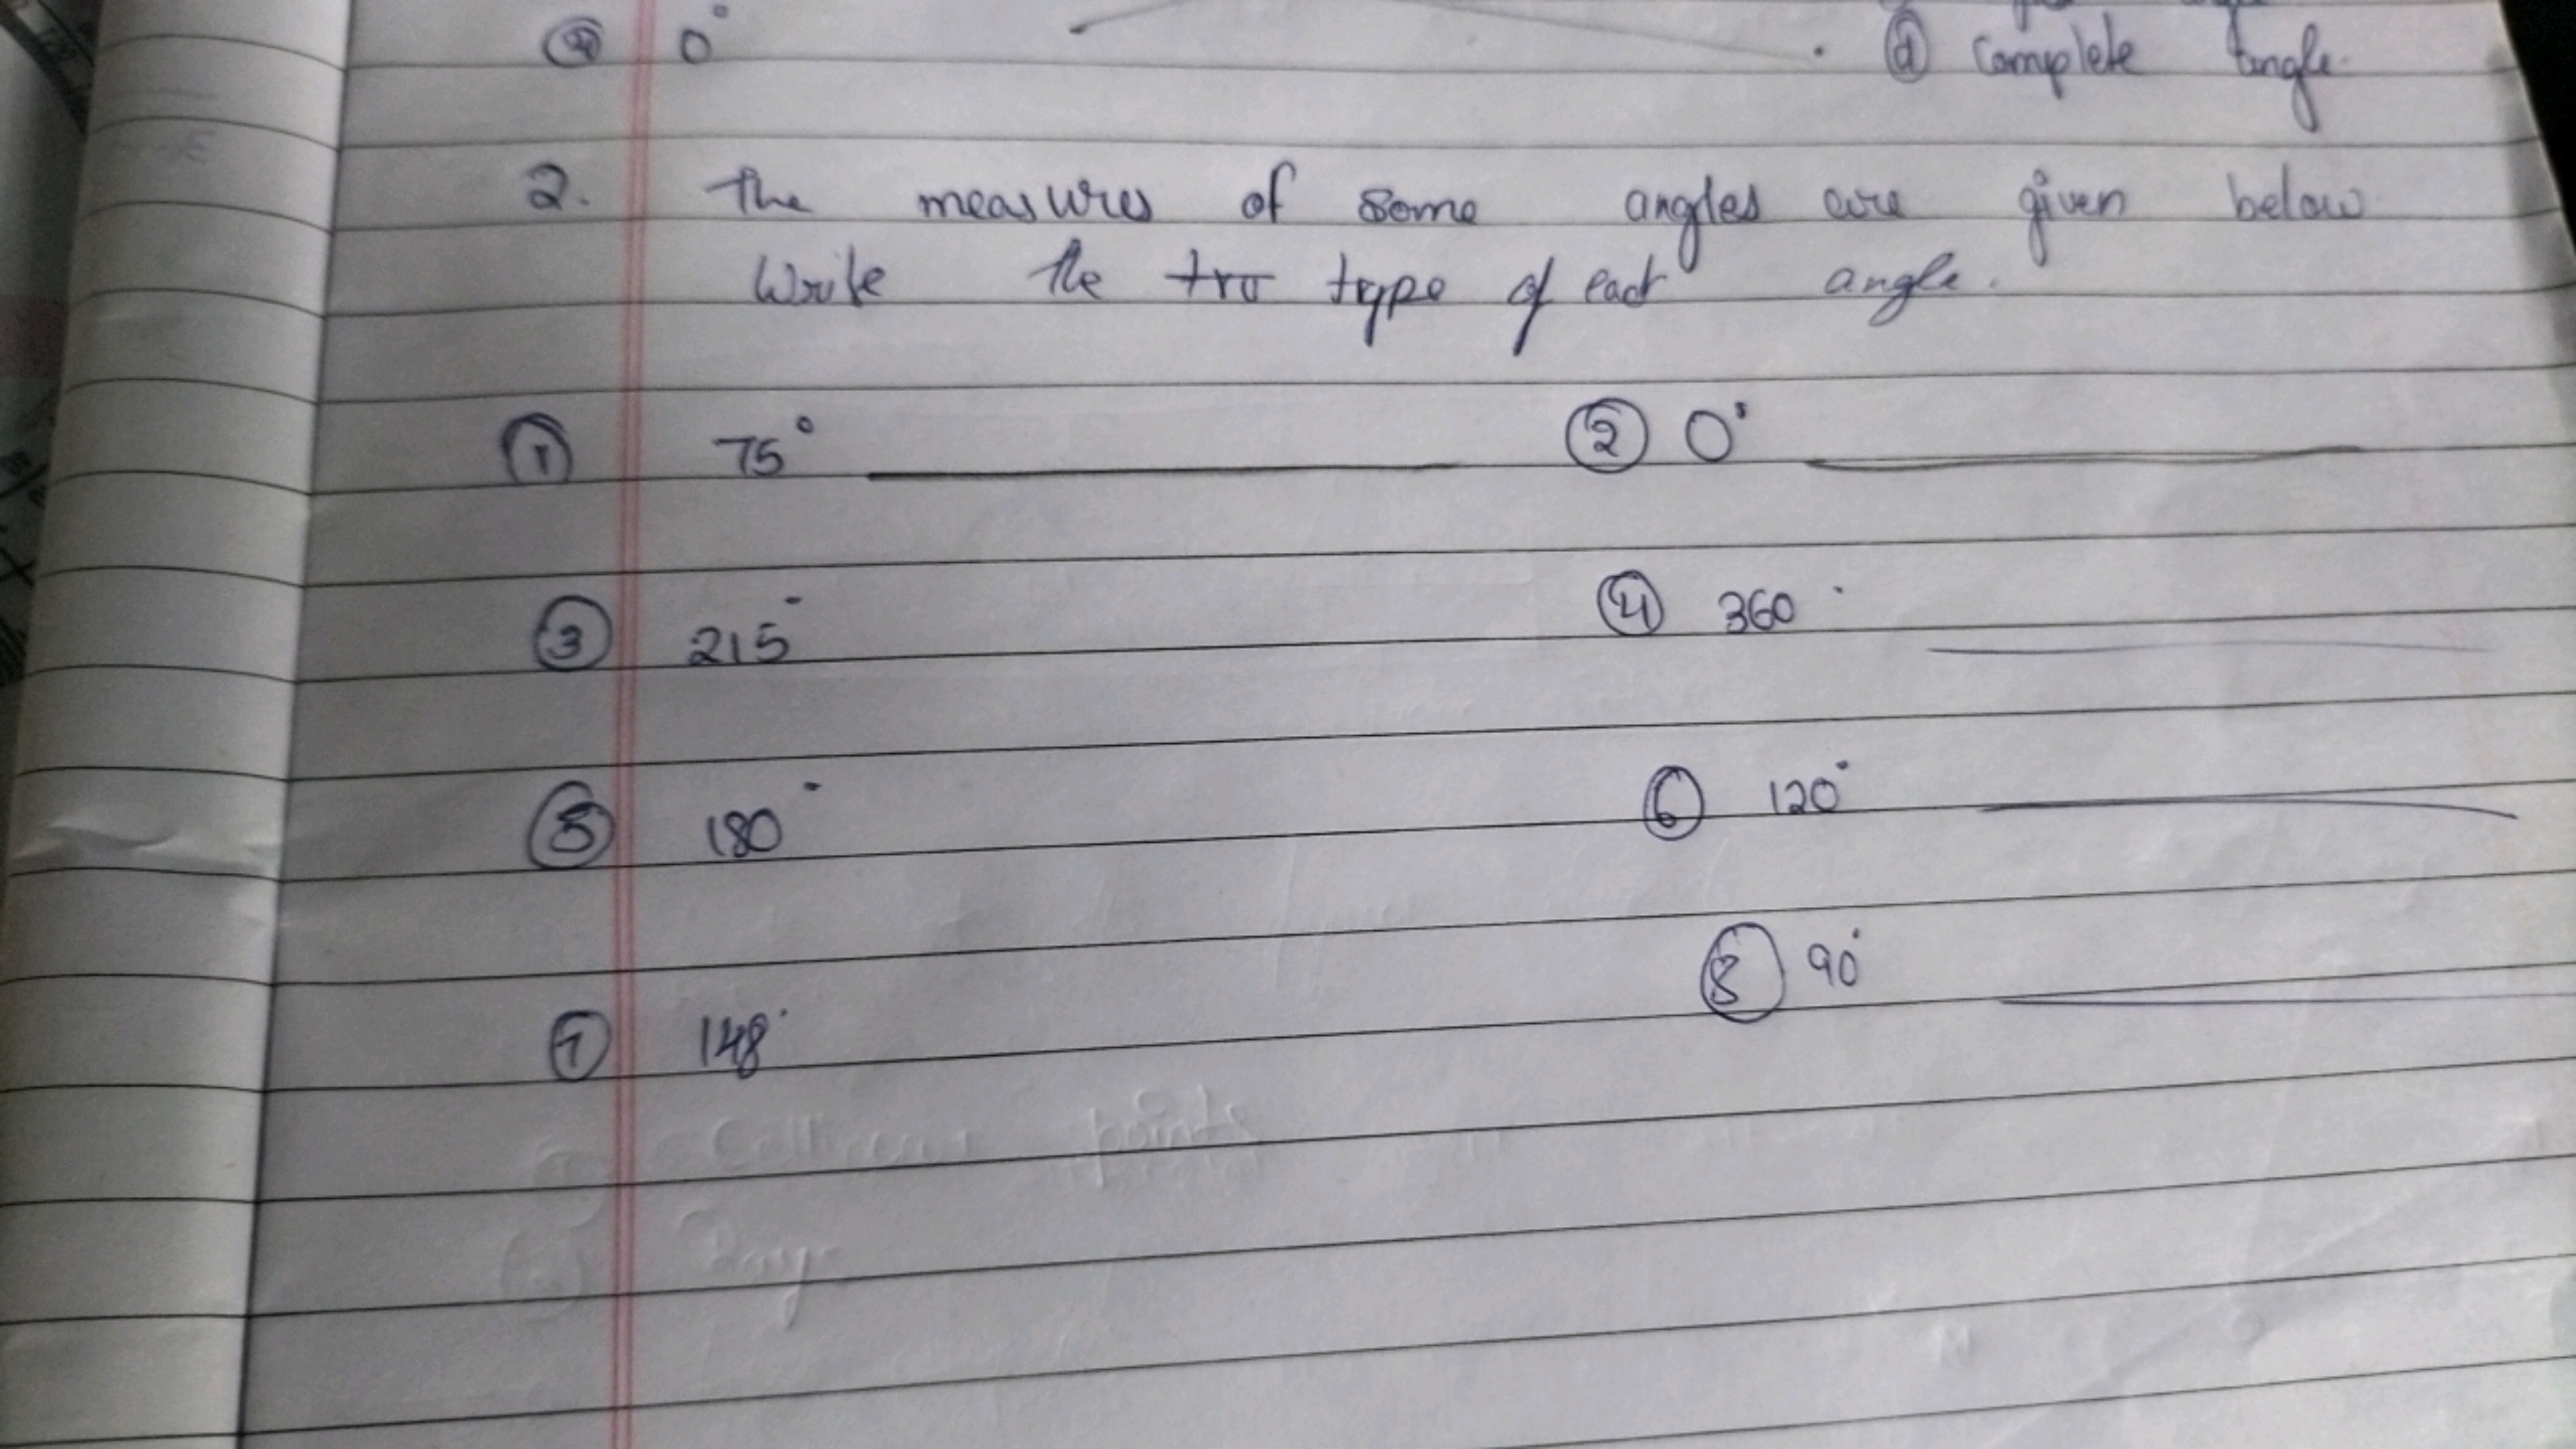 ④ 0°
ⓓ Complete Angle.
2. The measures of some angles are given below
Write the type of each angle.
① 75° ② 0°
③ 215° ④ 360°
⑤ 180° ⑥ 120°
⑦ 148° ⑧ 90°